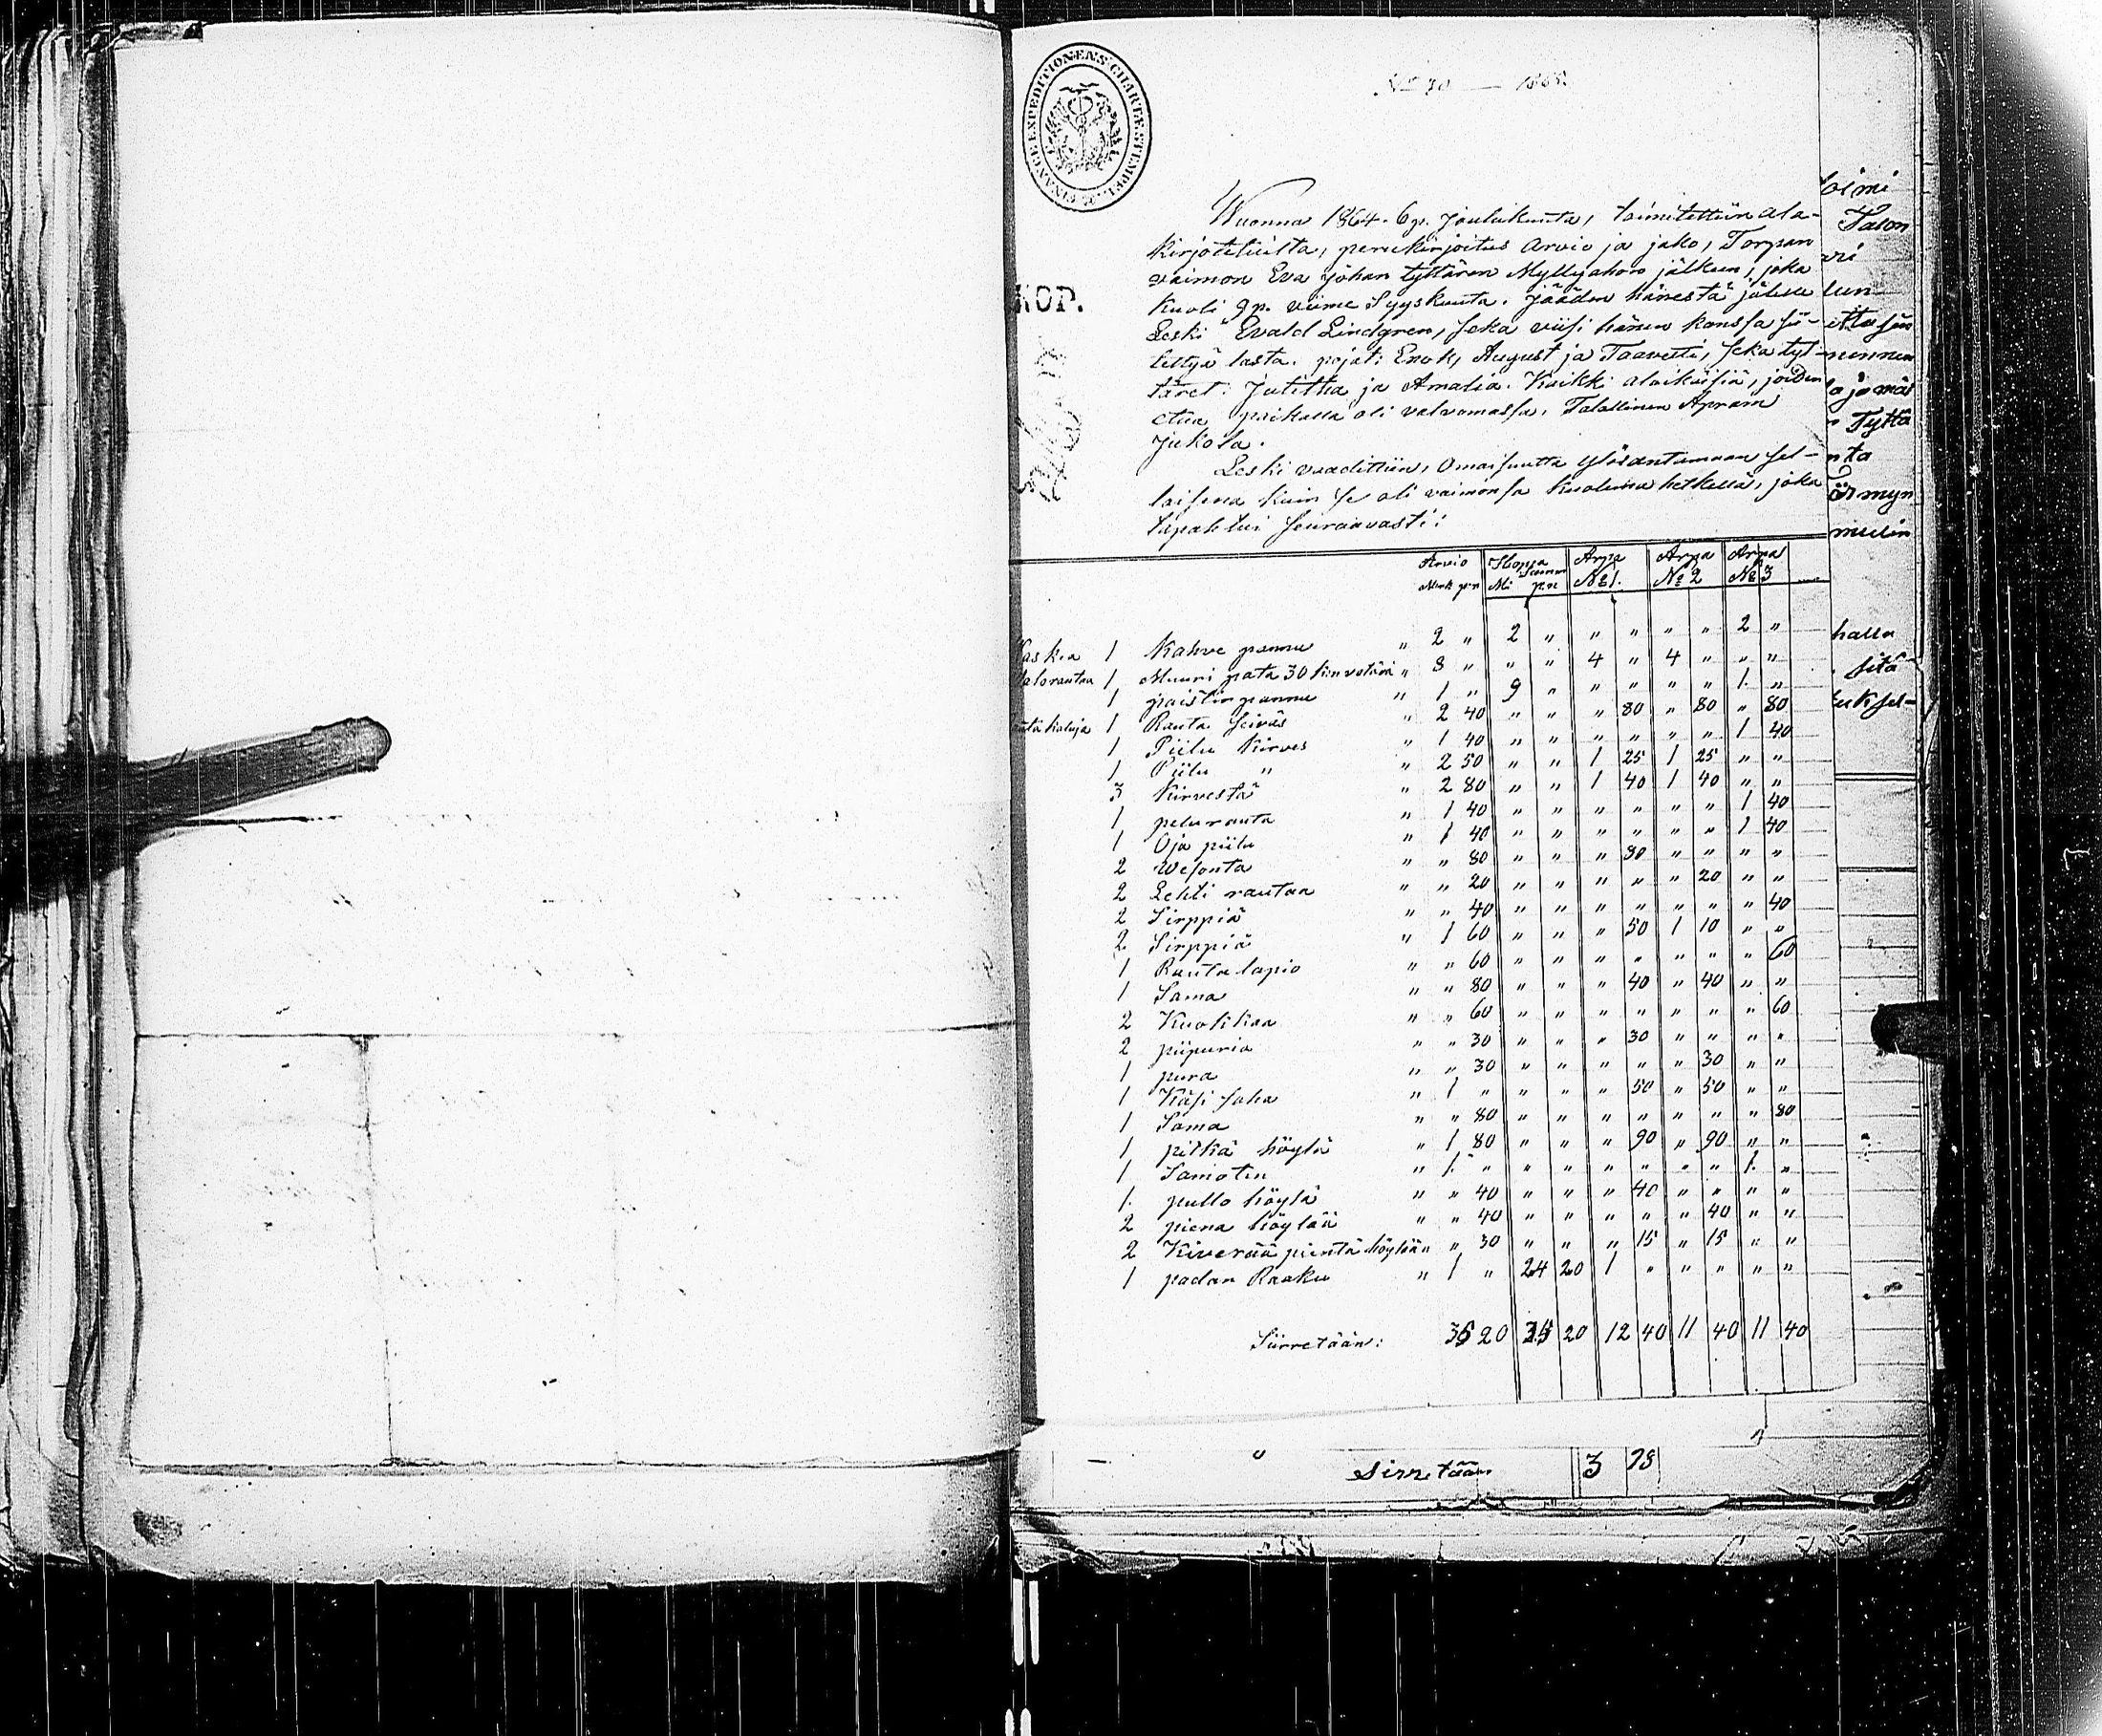 No 70 — 1865
FINANCE EXPEDITIONENS CHARTÆ STEMPEL
KOP.
Wuonna 1864. 6 p. Joulukuuta, toimitettiin ala-
kirjoteluilta, perukirjoitus Arvio ja jako, Torpan
vaimon Eva Johan tyttären Myllyahon jälkeen, joka
kuoli 9 p. viime Syyskuuta. Jääden hänestä jälkeen
Leski Evald Lindgren, seka viisi hänen kanssa sii-
tettyä lasta. pojat: Enok, August ja Taavetti, seka tyt-
täret: Juditha ja Amalia. Kaikki alaikäisiä, joiden
etua paikalla oli valvomassa, Talollinen Apram
Jukola.
Leski vaadittiin, Omaisuutta ylösantamaan sel-
laisena kuin se oli vaimonsa kuolema hetkellä, joka
tapahtui seuraavasti:
Arvio Arpa Arpa Arpa
Mark pn M: pn No 1. No 2 No 3
Waskea 1 Kahve pannu " 2 " 2 " " " " " 2 "
Valorautaa 1 Muuri pata 30 kin vetävä " 8 " " " 4 " 4 " " "
1 paistin pannu " 1 " 9 " " " " " 1 "
Rauta kaluja 1 Rauta seiväs " 2 40 " " " 80 " 80 " 80
1 Piilu kirves " 1 40 " " " " " " 1 40
1 Piilu " " 2 50 " " 1 25 1 25 " "
3 Kirvestä " 2 80 " " 1 40 1 40 " "
1 pelurauta " 1 40 " " " " " " 1 40
1 Oja piilu " 1 40 " " " " " " 1 40
2 Wesonta " " 80 " " " 80 " " " "
2 Lehti rautaa " " 20 " " " " " 20 " "
2 Sirppiä " " 40 " " " " " " " 40
2 Sirppiä " 1 60 " " " 50 1 10 " "
1 Rauta lapio " " 60 " " " " " " " 60
1 Sama " " 80 " " " 40 " 40 " "
2 Kuokkaa " " 60 " " " " " " " 60
2 piipuria " " 30 " " " 30 " " " "
1 pura " " 30 " " " " " 30 " "
1 Käsi saha " 1 " " " " 50 " 50 " "
1 Sama " " 80 " " " " " " " 80
1 pitkä höylä " 1 80 " " " 90 " 90 " "
1 Samoten " 1 " " " " " " " 1 "
1 pullo höylä " " 40 " " " 40 " " " "
2 piena höylää " " 40 " " " " " 40 " "
2 Kiverää pientä höylää " " 30 " " " 15 " 15 " "
1 padan Raaku " 1 " 24 20 1 " " " " "
Siirretään: 35 20 35 20 12 40 11 40 11 40
Sirretään 3 78
oimi
Talon
vi
lun
Tyttä
nta
halla
sitä